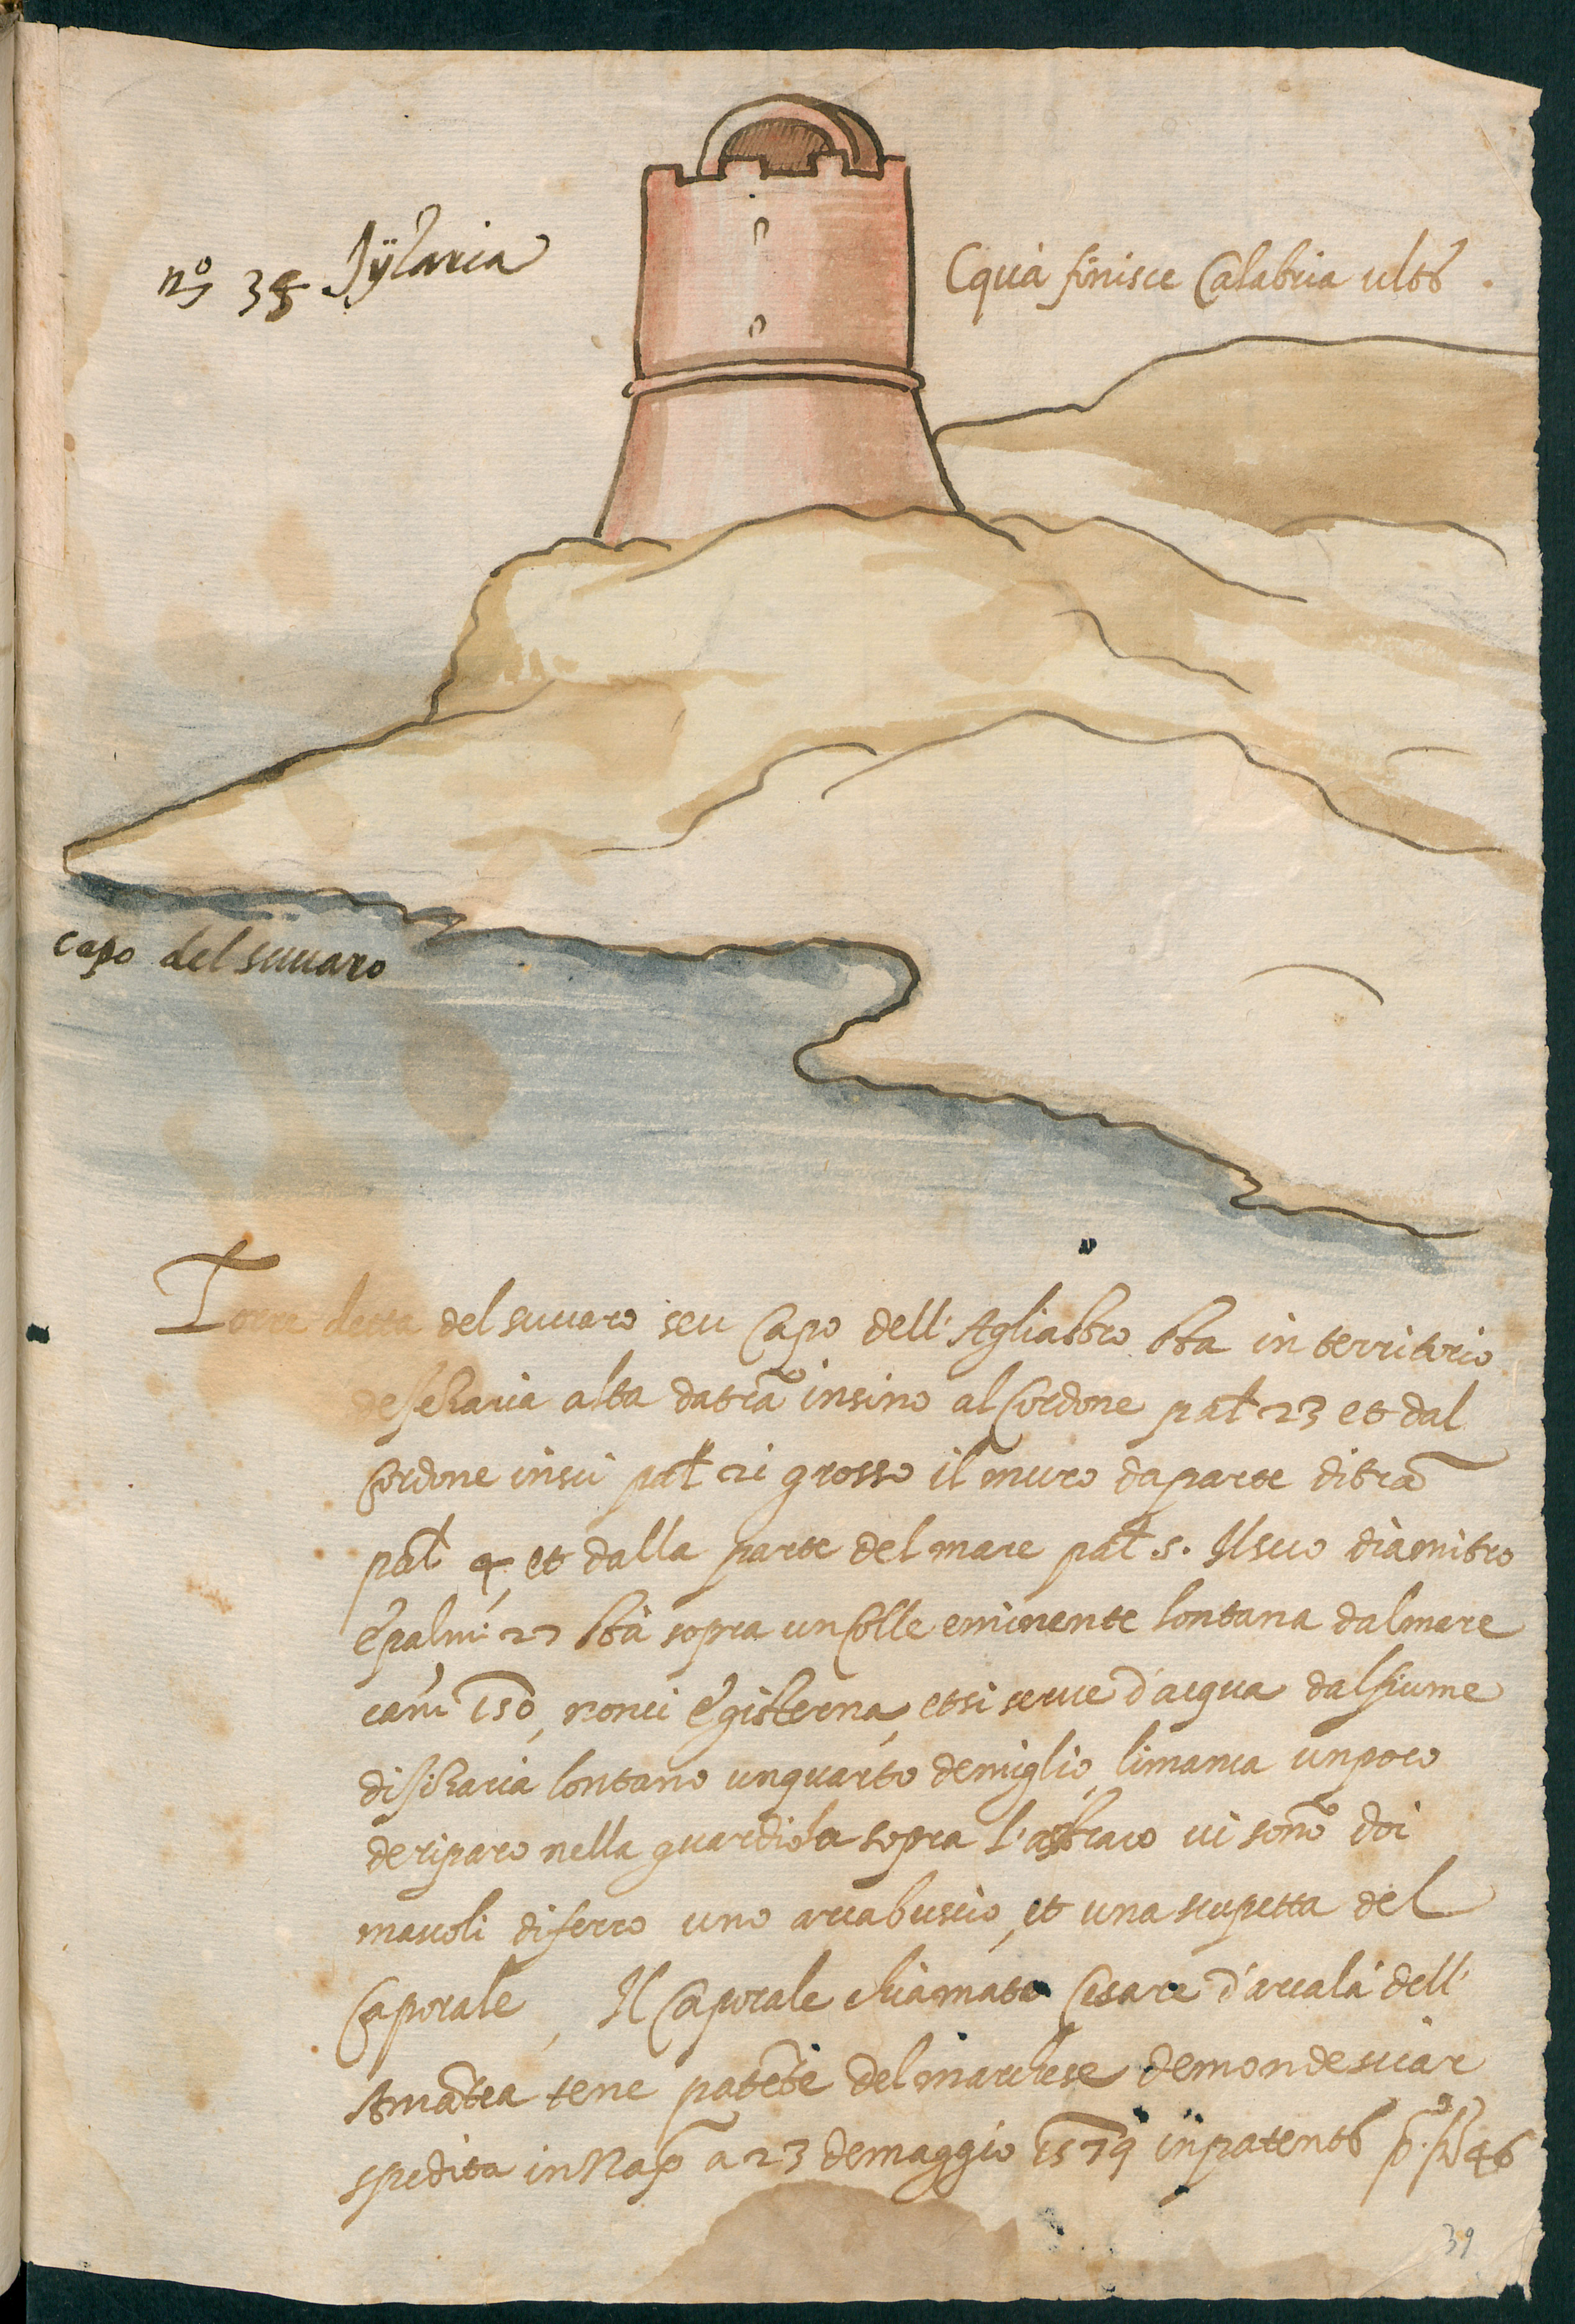 nº 38
Cqua finisce Calabria
capo del suuaro
Torre detta del suuaro seu Capo dell'Agliastro sta in territorio
alta da trã insino al Cordone pal 23 et dal
Cordone insu pal 21 grosso il muro da parte di trã
pal 4 et dalla parte del mare pal 5. Il suo diamitro
è palmi 27 sta sopra un Colle eminente lontana dal mare
can 150, non ci è gisterna, et si serue d'acqua dal fiume
lontano un quarto de miglio, li manca un poco
de riparo nella guardiola sopra l'astraco ui sono doi
mascoli di ferro uno arcabuscio, et una scupetta del
Caporale, Il Caporale chiamato Cesare d'arcalà dell'
Amãtea tene patẽte del marchese de mondesciar
spedita in Nap a 23 de maggio 1579 in 46
39